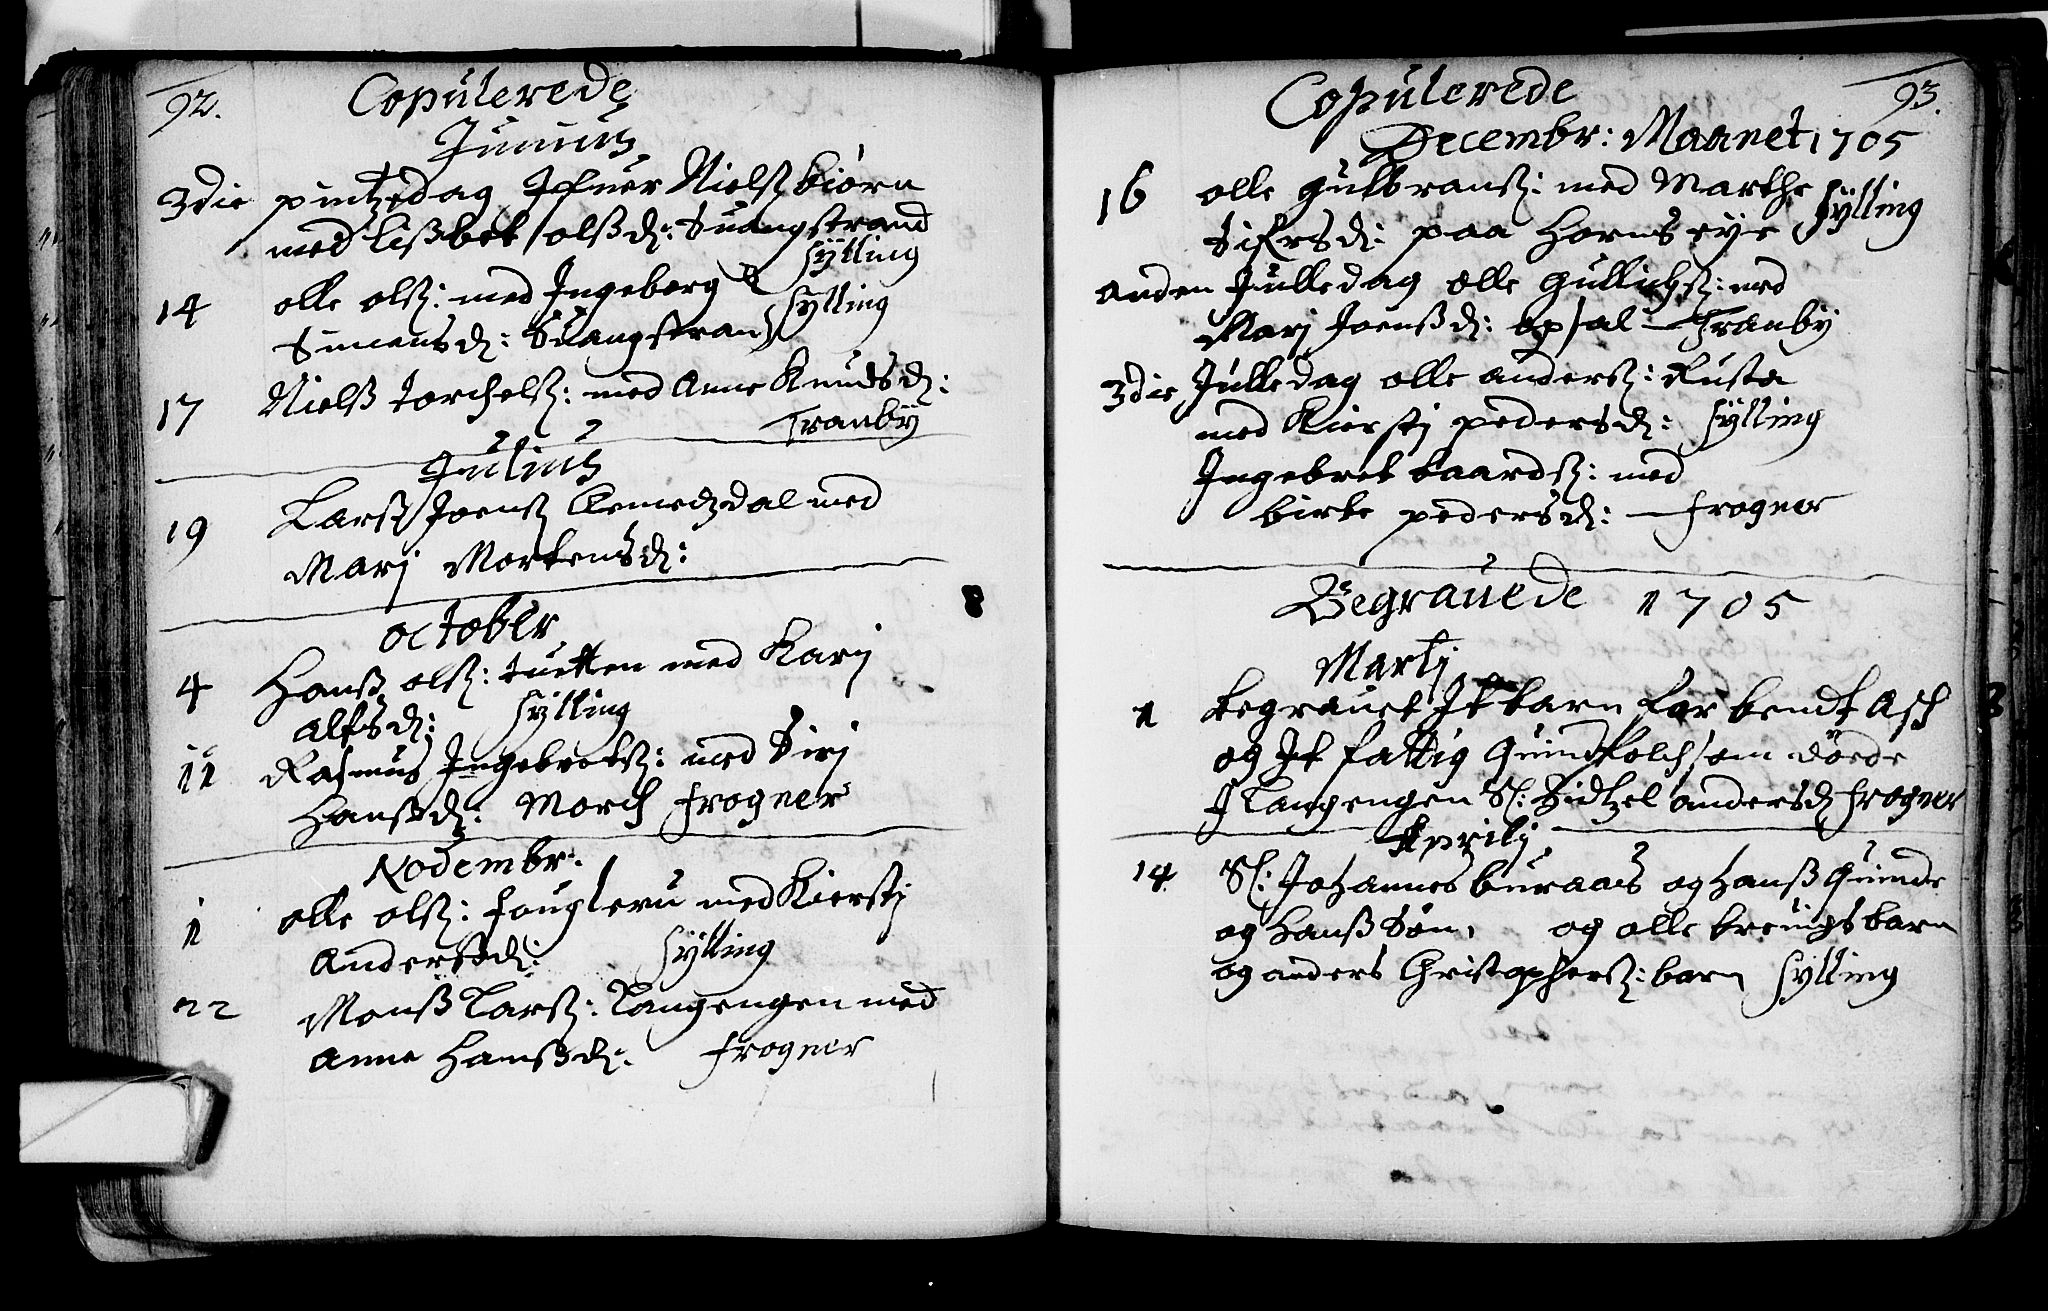 92.
Copulerede
Junius
3die pintzedag Ifuer Nielsz biørn
med Lisbet olsd: Suangstrand
Sylling
14 olle olsz: med Ingeborg
Simensd: Suangstrand Sylling
17 Nielsz Torchelsz: med Anne Knudsd:
Tranby
Julius
19 Larsz Joensz Clemedzdal med
Marj Mortensd:
October
4 Hansz olsz: tuetten med Karj
alfsd: Sylling
11 Rasmus Ingebretsz: med Sirj
Hansd: Morch Frogner
Nodembr:
1 olle olsz: fougleru med Kierstj
Andersd: Sylling
22 Monsz Larsz: Langengen med
Anne Hansd: Frogner
93.
Copulerede
Decembr: Maanet 1705
16 olle gulbransz: med Marthe
Sifrsd: paa Hornseye Sylling
anden Julledag olle gullichsz: med
Marj Joensd: opsal Tranby
3die Julledag olle andersz: Rusta
med Kierstj pedersd: Sylling
Ingebret baardsz: med
birte pedersd: Frogner
Begrauede 1705
Martj
1 begrauet It barn for bendt Asch
og It fattig Quindfolch som döede
J Langengen Sl: Sidtzel andersd Frogner
Aprilj
14 Sl: Johannes buraas og Hansz Quinde
og Hansz Søn, og olle breuigs barn
og anders Christophersz: barn Sylling